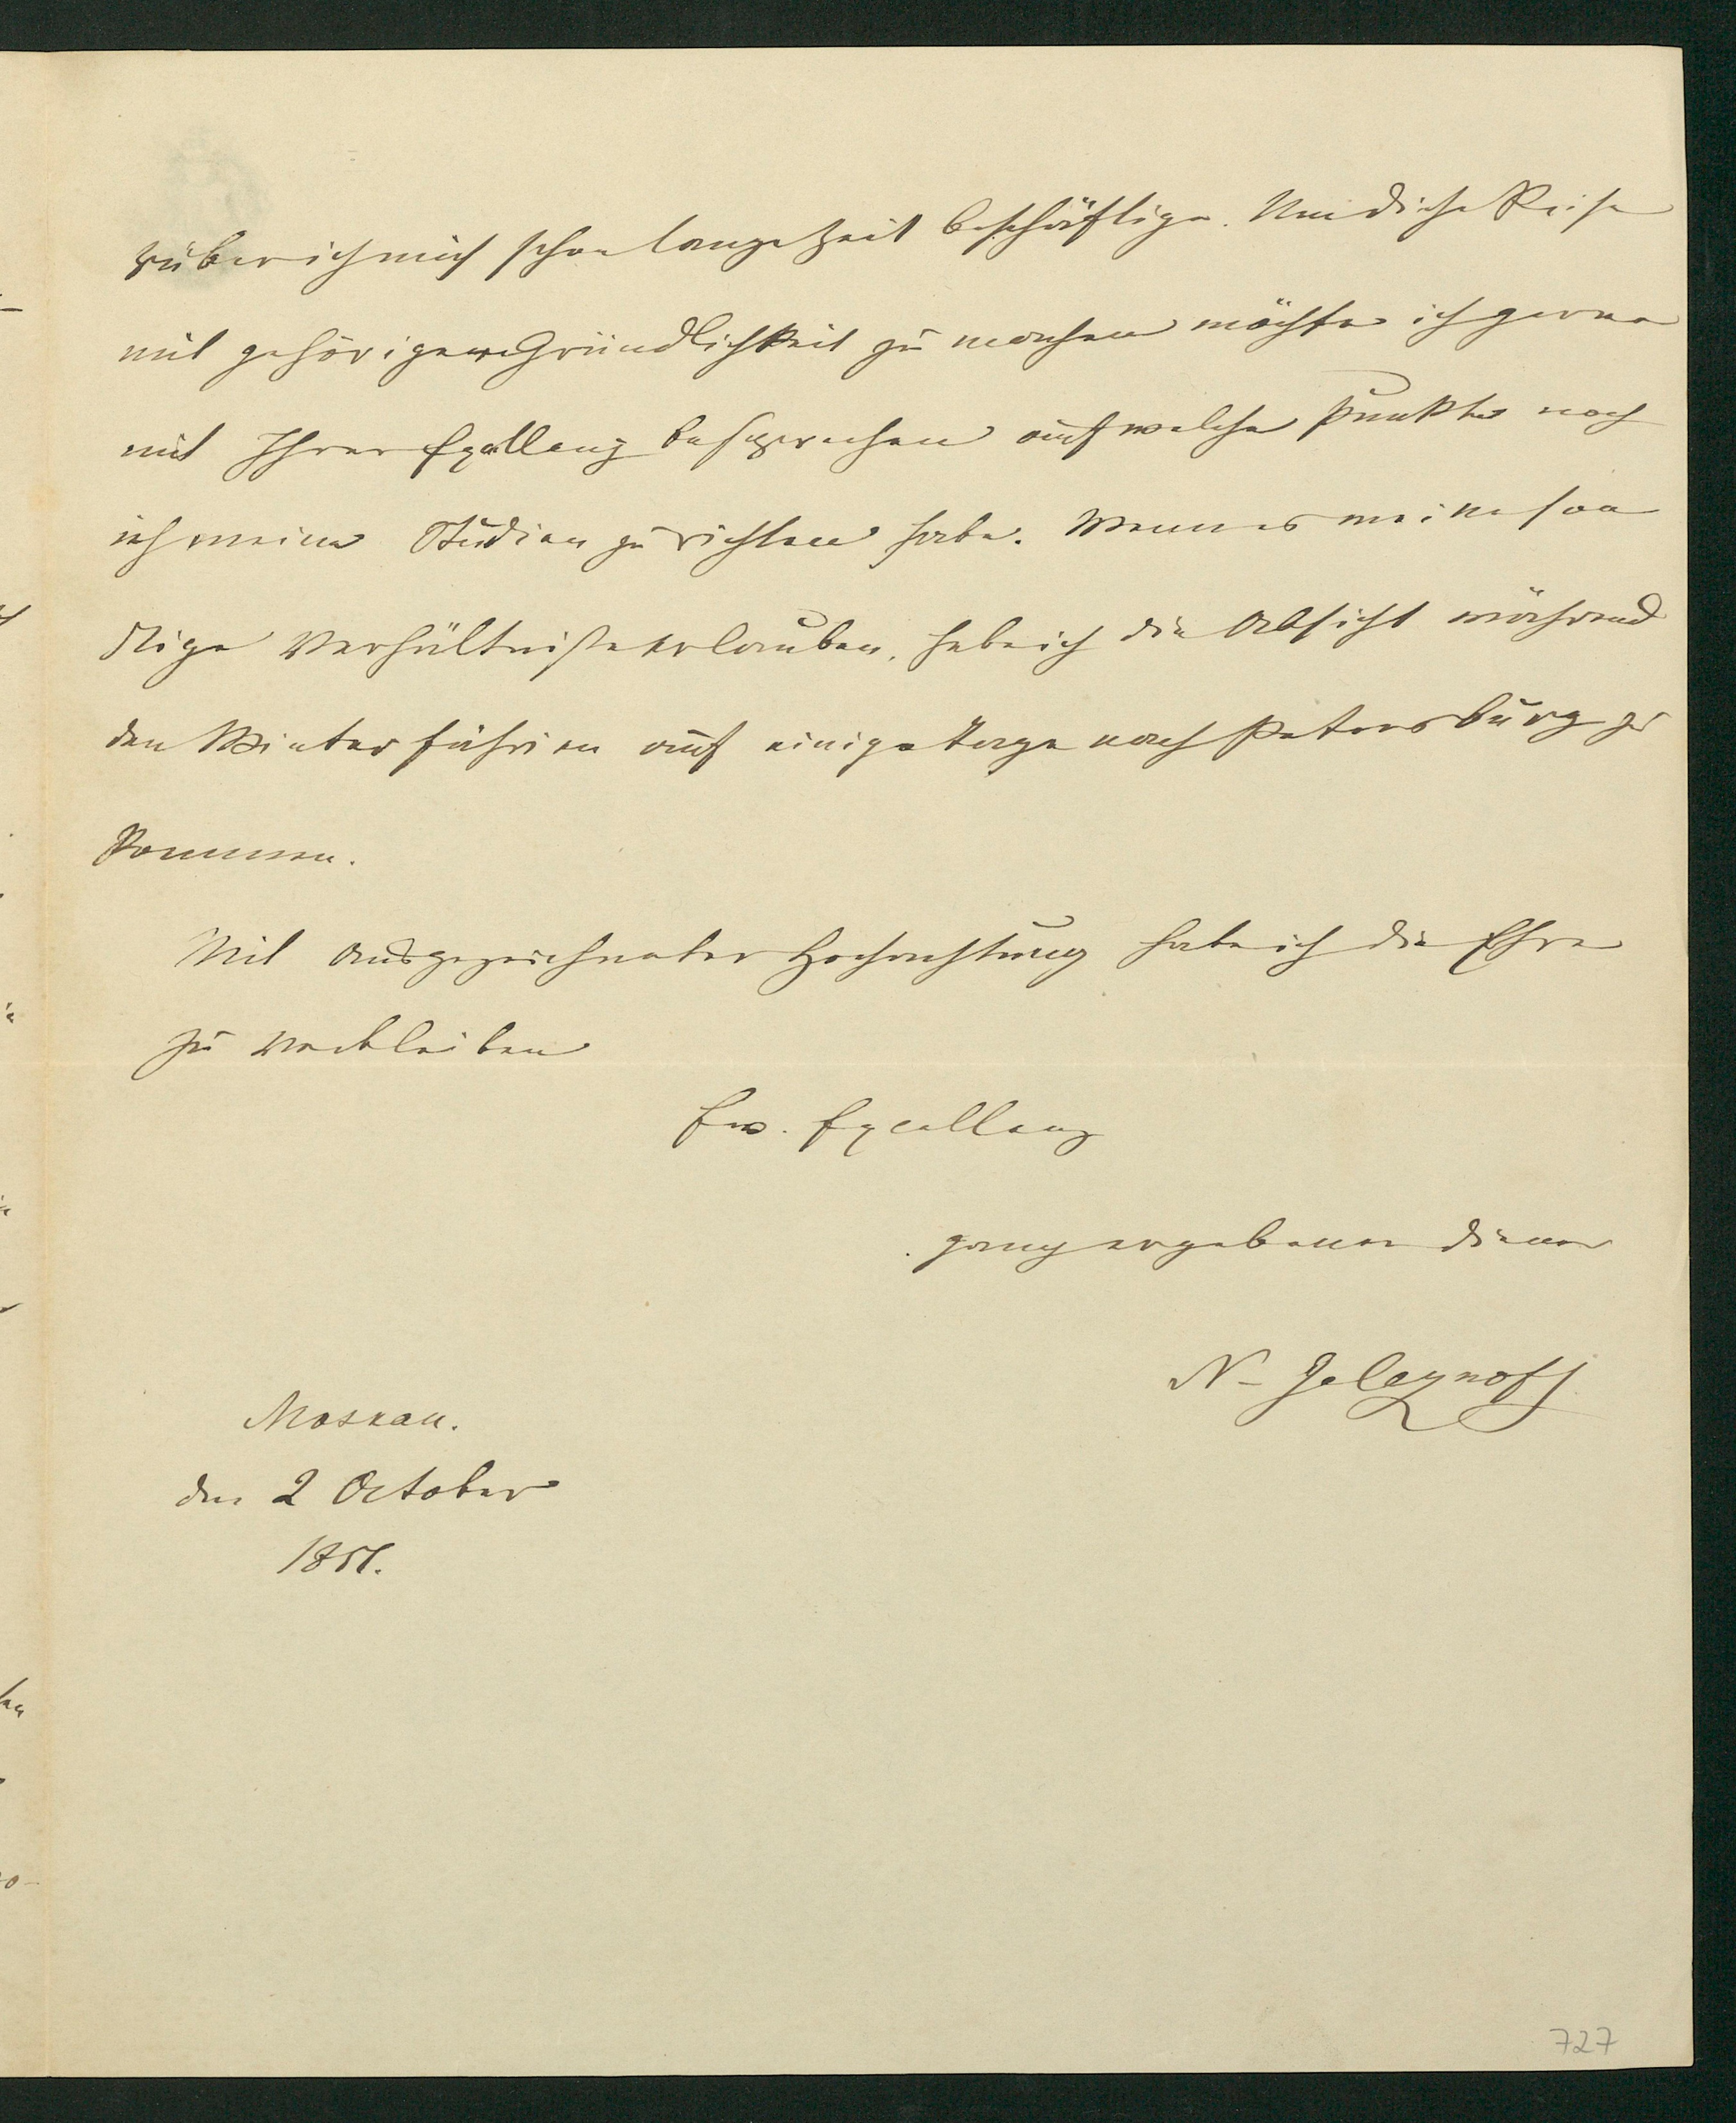 rüber ich mich schon lange Zeit beschäftige. Um diese Reise
mit gehöriger Gründlichkeit zu machen möchte ich gerne
mit Ihrer Excellenz besprechen auf welche Punkte noch
ich meine Studien zu richten habe. Wenn es meine son
stige Verhältnisse erlauben, habe ich die Absicht während
den Winterferien auf einige Tage nach Petersburg zu
kommen.
Mit ausgezeichneter Hochachtung habe ich die Ehre
zu verbleiben
Ew. Excellenz
ganz ergebener Diener
N- Jeleznoff
Moskau.
den 2 October
727